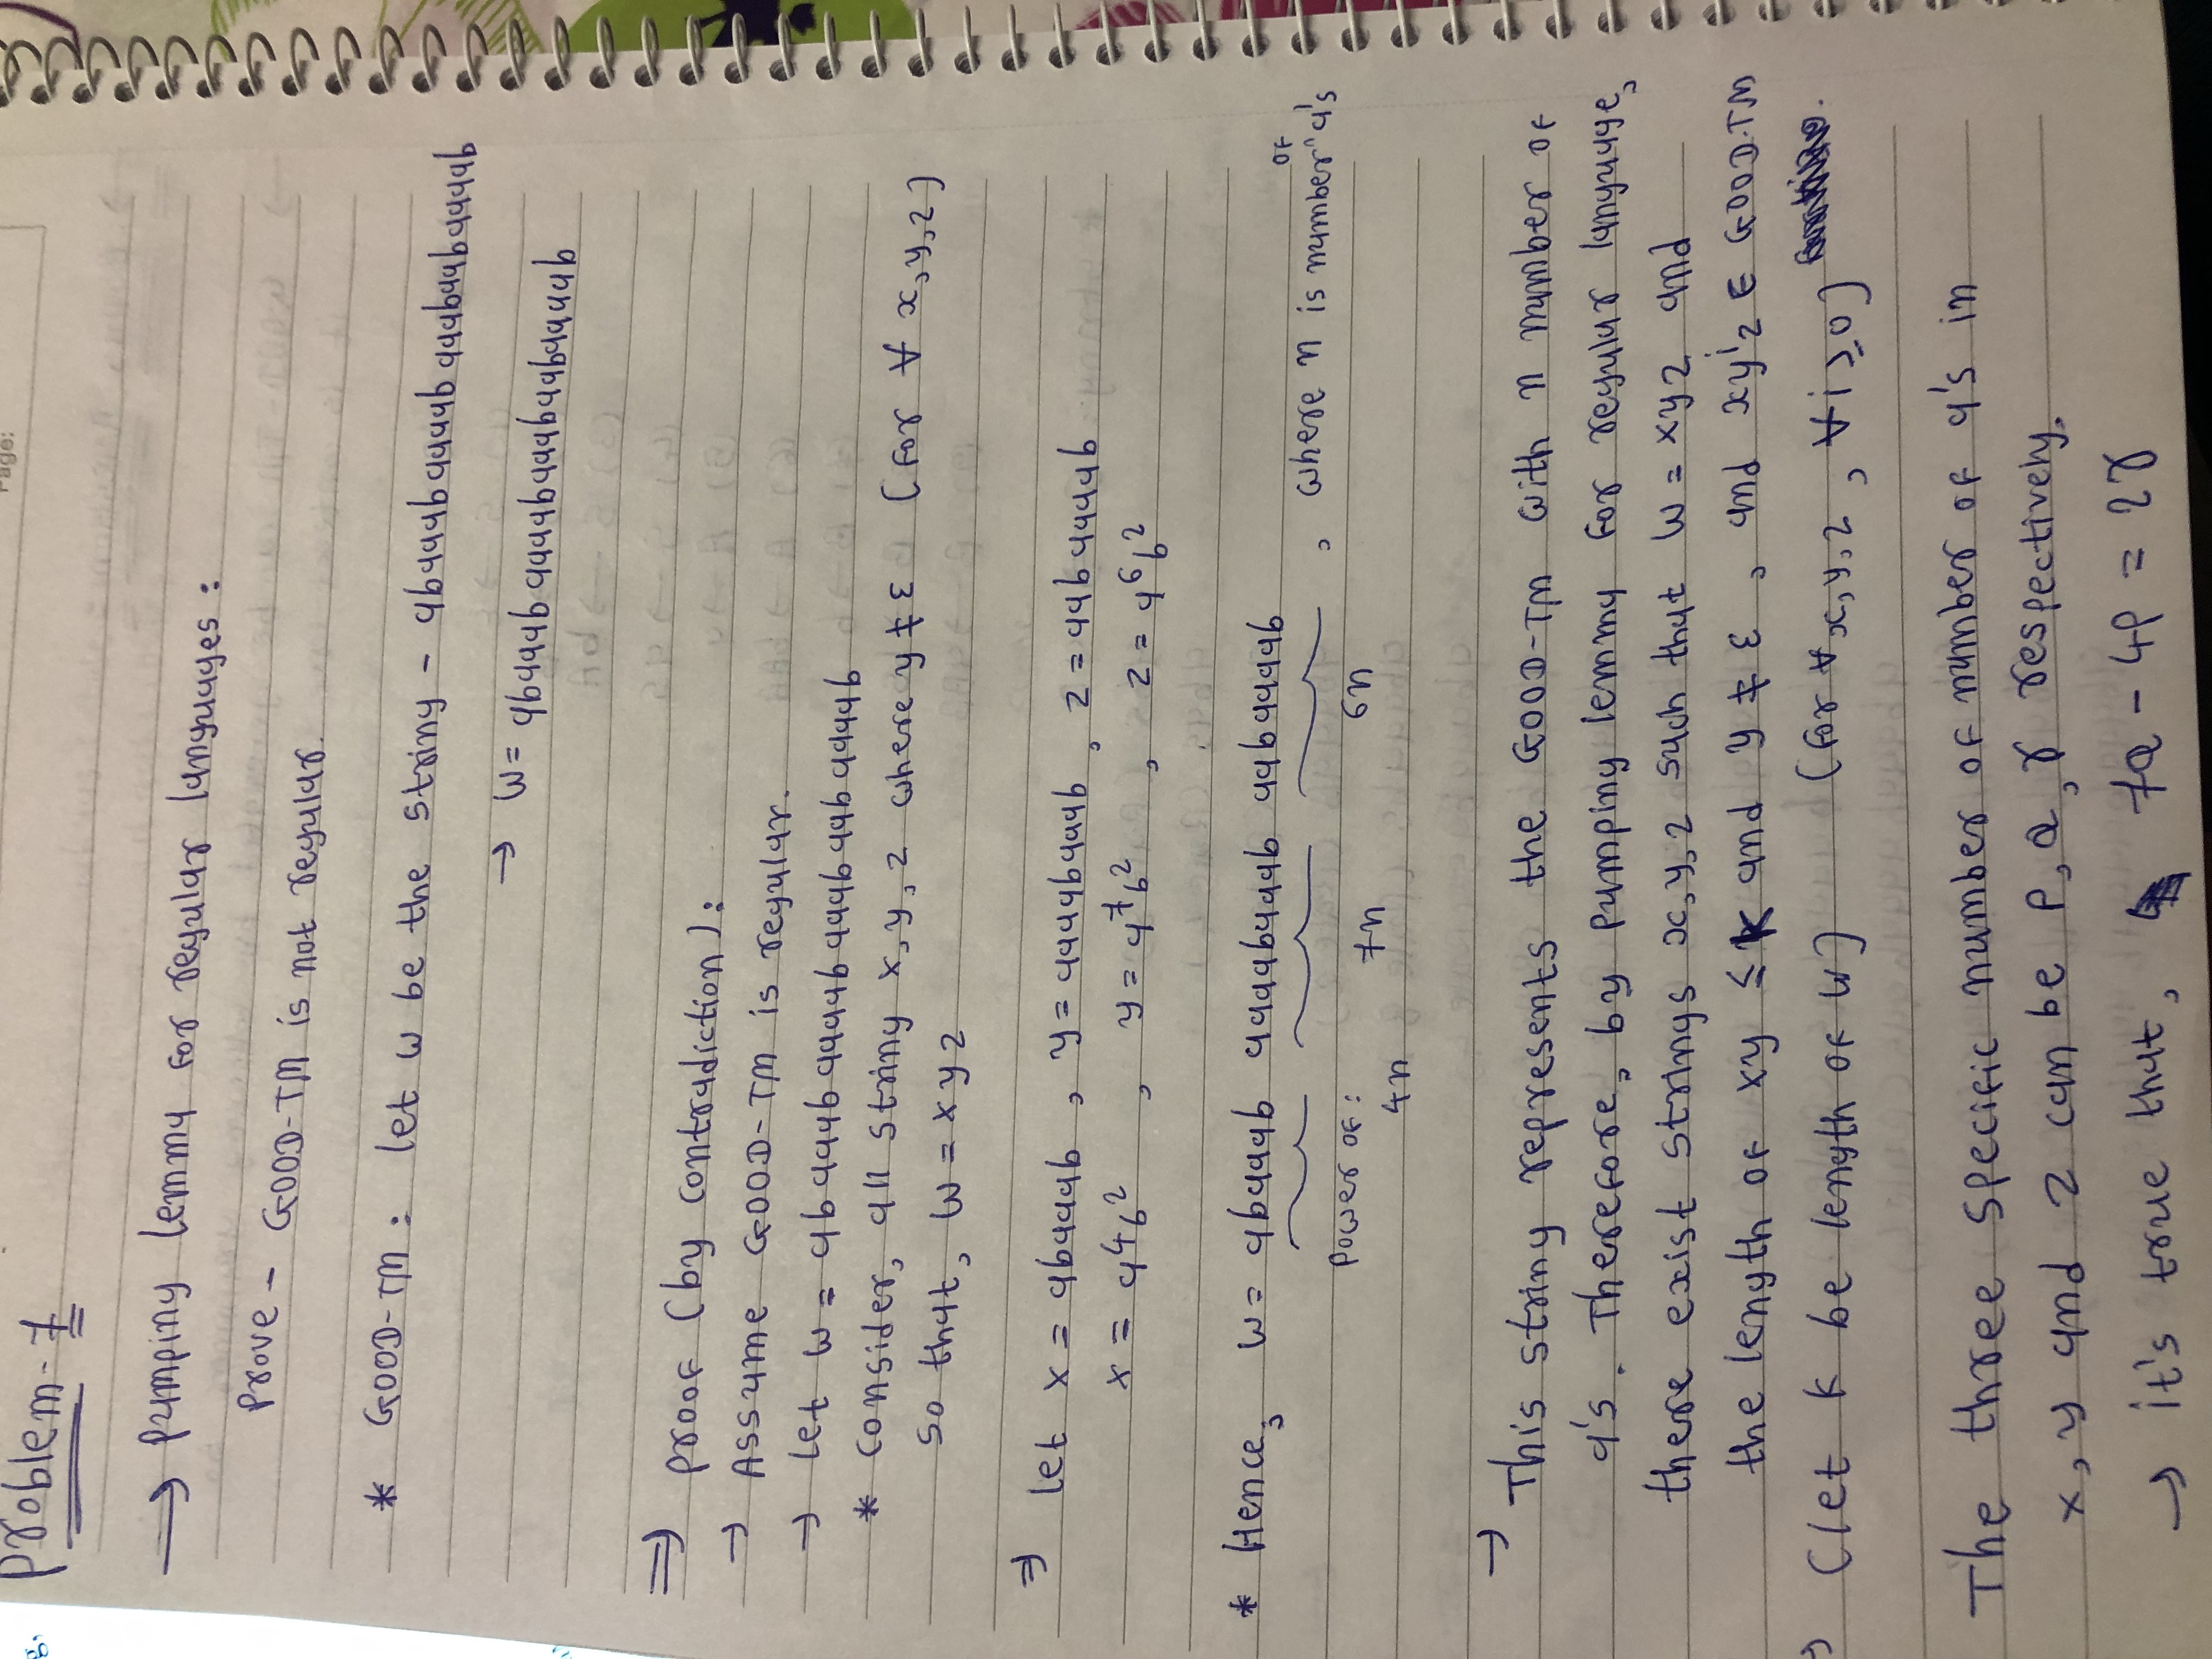 Page:
g,
Problem-7
→ Pumping lemma for regular languages:
Prove - GOOD-TM is not regular.
* GOOD-TM: let w be the string - abaaabaaaabaaabaabaaaab
→ w= abaaabaaaabaaabaabaaaab
⇒ proof (by contradiction):
→ Assume GOOD-TM is regular.
→ Let w = abaaabaaaabaaabaabaaaab
* consider, all string x, y, z where y ≠ ε (for ∀ x, y, z)
so that, w = xyz
⇒ let x = abaaab, y = aaaabaaab, z = aabaaaab
x = a⁴b², y = a⁷b², z = a⁶b²
* Hence, w= abaaab aaaabaaab aabaaaab, where n is number of a's
Power of: 4n 7n 6n
→ This string represents the GOOD-TM with n number of
a's. Therefore, by pumping lemma for regular language,
there exist strings x, y, z such that w = xyz and
the length of xy ≤ k and y ≠ ε, and xyⁱz ∈ GOOD-TM
→ (let k be length of w) (for ∀ x, y, z, ∀ i ≥ 0)
The three specific number of number of a's in
x, y and z can be P, Q, r respectively.
→ it's true that, 7Q - 4P = 2r